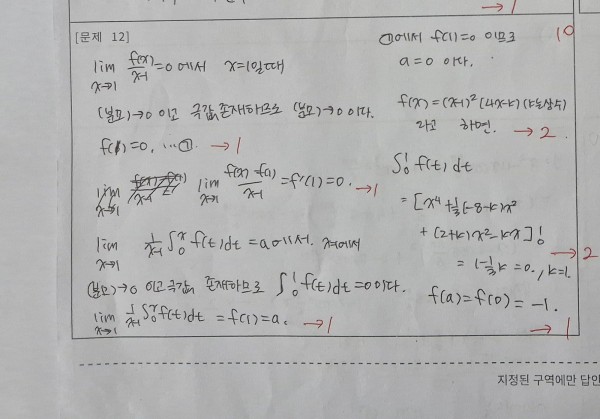 →1
[문제 12]
lim x→1 f(x)/x-1 = 0 에서 x=1일때
(분모)→0 이고 극값 존재하므로 (분모)→0 이다.
f(1)=0. …① →1
lim x→1 f(x)-f(1)/x-1 = f'(1)=0. →1
lim x→1 1/x-1 ∫₀ˣ f(t)dt = a 에서. x=1에서
(분모)→0 이고 극값 존재하므로 ∫₀¹ f(t)dt=0 이다.
lim x→1 1/x-1 ∫₀ˣ f(t)dt = f(1)=a. →1
①에서 f(1)=0 이므로 10
a=0 이다.
f(x)=(x-1)²(4x-k) (k는상수)
라고 하면. →2
∫₀¹ f(t)dt
= [x⁴+⅓(-8-k)x³
+(2+k)x²-kx]₀¹
→2
= 1-⅓k=0., k=1.
f(a)=f(0)=-1.
→1
지정된 구역에만 답안